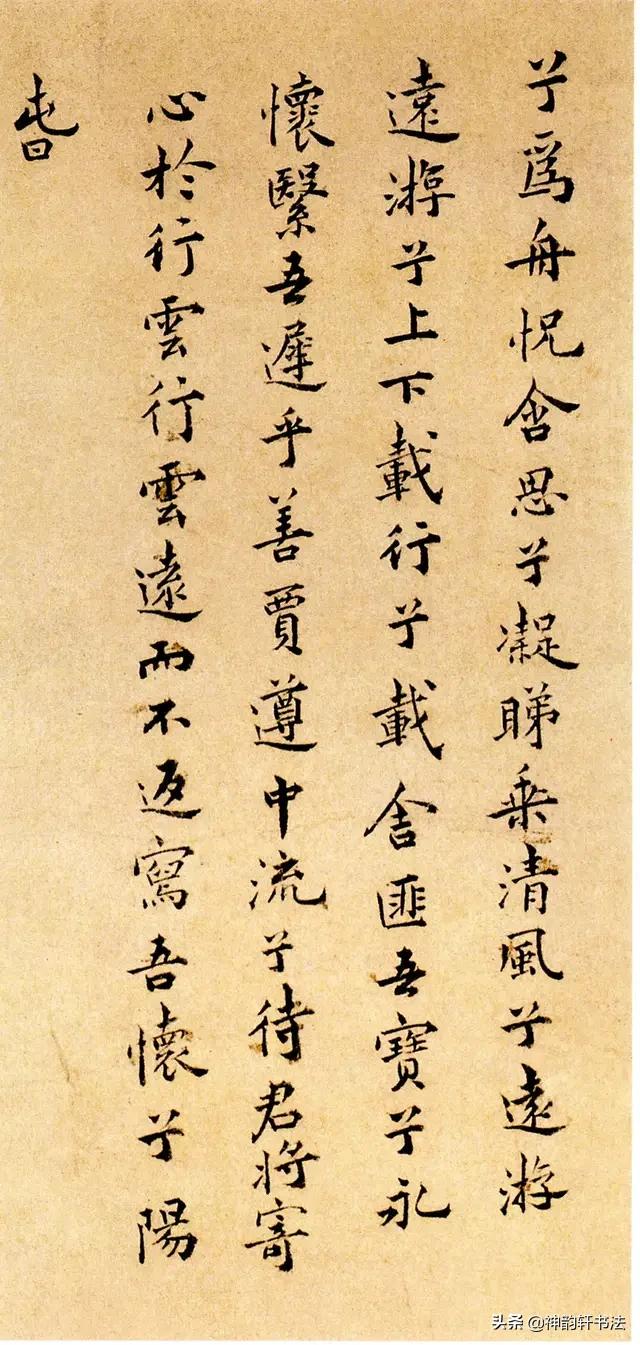 兮爲舟怳含思兮凝睇乘清風兮遠游
遠游兮上下載行兮載舍匪吾寶兮永
懷繄吾遲乎善賈遵中流兮待君將寄
心於行雲行雲遠而不返寫吾懷兮陽
旾
头条 @神韵轩书法